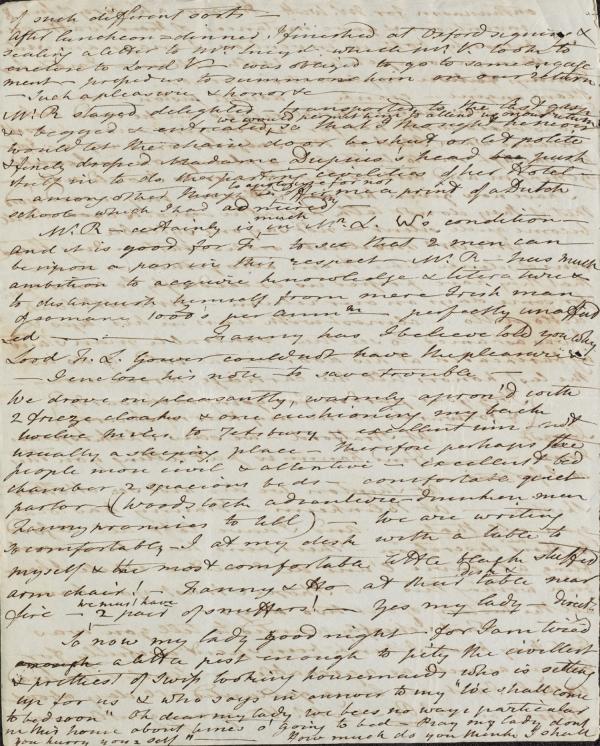 of such different sorts —
After luncheon = dinner I finished at Oxford signing &
sealing a letter to Mrs which Mr V took to
enclose to Lord V — was obliged to go to some engage
ment proposed to summons him on our return
— Such a pleasure & honor &c
Mr R stayed delighted transported to the last gasp
we would permit him to attend us on our return
& begged & entreated so that I thought he never
would let the chaise door be shut or let polite
& finely draped Madame Dupuis's head push
itself in to do the parting civilities of her Hotel —
to apologize for not
— among other things giving me a print of a Dutch
school which I had admired
much
Mr R — certainly is in Mr L. W's condition —
and it is good for F — to see that 2 men can
be upon a par in this respect — Mr R — has much
ambition to acquire knowledge & literature &
to distinguish himself from mere Irish man
of so many 1000's per annum — perfectly unaffect
ed — — Fanny has I believe told you why
Lord F. L. Gower could not have the pleasure &c
— I enclose his note to save trouble —
We drove on pleasantly, warmly apron'd with
2 frieze cloaks & one cushioning my back
twelve miles to Tetsbury — excellent inn not
usually a sleeping place — therefore perhaps the
people more civil & attentive — excellent bed
chamber 2 spacious beds — comfortable quiet
parlor — (Woodstock adventure drunken men
Fanny promises to tell) — We are writing
so comfortably — I at my desk with a table to
myself & the most comfortable little black stuffed
arm chair! — Fanny & Ho at their table near
fire — we must have 2 pair of snuffers! — Yes my lady — direct-
So now my lady good night — for I am tired
a little just enough to pity the civillest
& prettiest of Swiss looking housemaids who is sitting
up for us & who says in answer to my "We shall come
to bed soon" Oh dear my lady we bees no ways particular
in this house about times o' going to bed — Pray my lady dont
you hurry yourself" — Now much do you think I shall